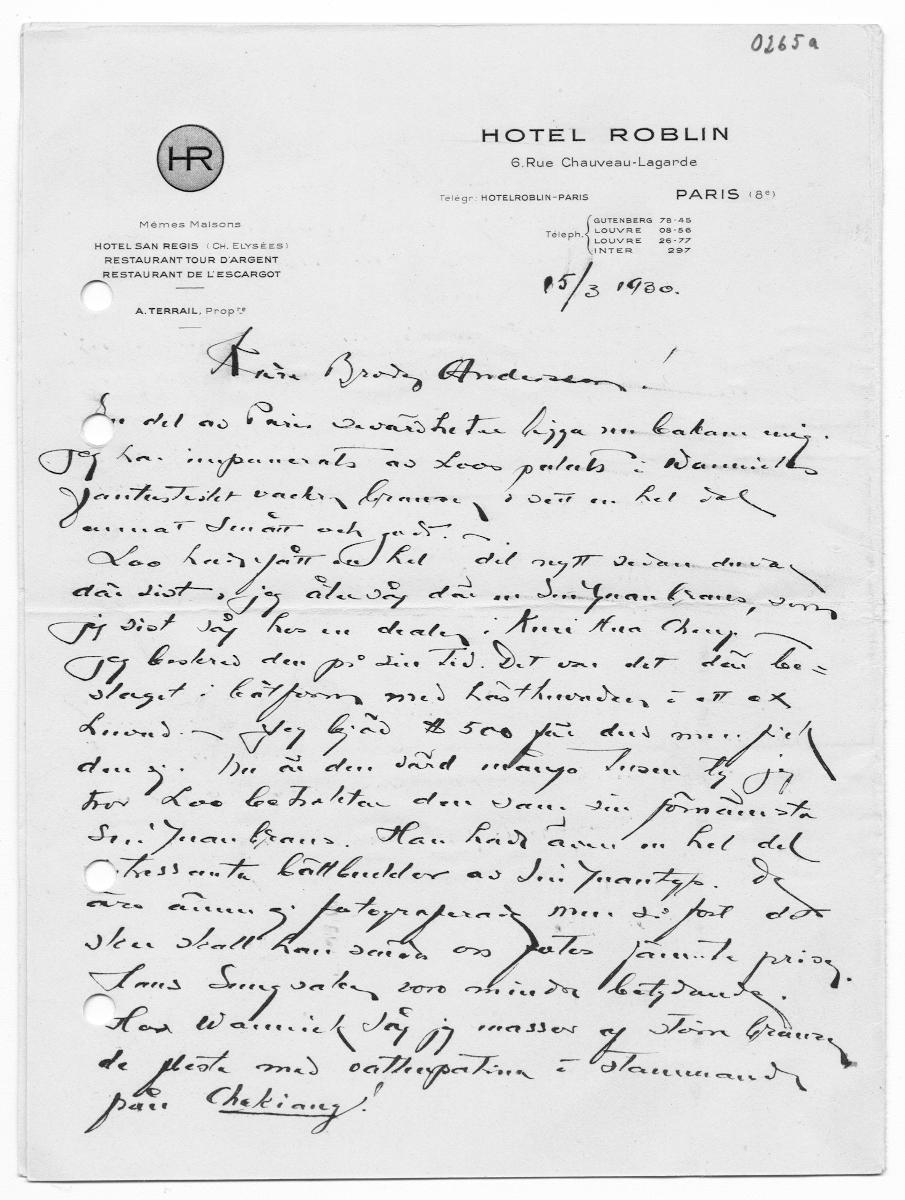 0265a
HR
HOTEL ROBLIN
6.Rue Chauveau-Lagarde
Telégr: HOTELROBLIN-PARIS
PARIS (8e)
Téleph. GUTENBERG 78-45
LOUVRE 08-56
LOUVRE 26-77
INTER 297
Mêmes Maisons
HOTEL SAN REGIS (CH. ELYSÉES)
RESTAURANT TOUR D'ARGENT
RESTAURANT DE L'ESCARGOT
A. TERRAIL, Propre
15/3 1930.
Käre Broder Andersson!
En del av Paris sevärdheter ligga nu bakom mig.
Jag har imponerats av Loos palats i Wanniecks
fantastiskt vackra bronser, i sett en hel del
annat smått och gott. –
Loo hade fått en hel del nytt sedan du var
där sist, jag återsåg där en Sui Yuan brons, som
jag sist såg hos en dealer i Kwei Hua Cheng.
Jag beskrev den på sin tid. Det var det där be=
slaget i båtform med hästhuvuden i ett ox
huvud. – Jag bjöd $ 500 för den men fick
den ej. Nu är den värd många tusen ty jag
tror Loo betraktar den som sin förnämsta
Sui Yuan brons. Han hade även en hel del
tressanta bältbucklor av Sui Yuantyp. De
äro ännu ej fotograferade men så fort det
sker skall han sända oss fotos jämte priser.
Hans Sungsaker voro mindre betydande.
Hos Wannieck såg jag massor af större bronser
de flesta med vattenpatina i stammande
från Chekiang!